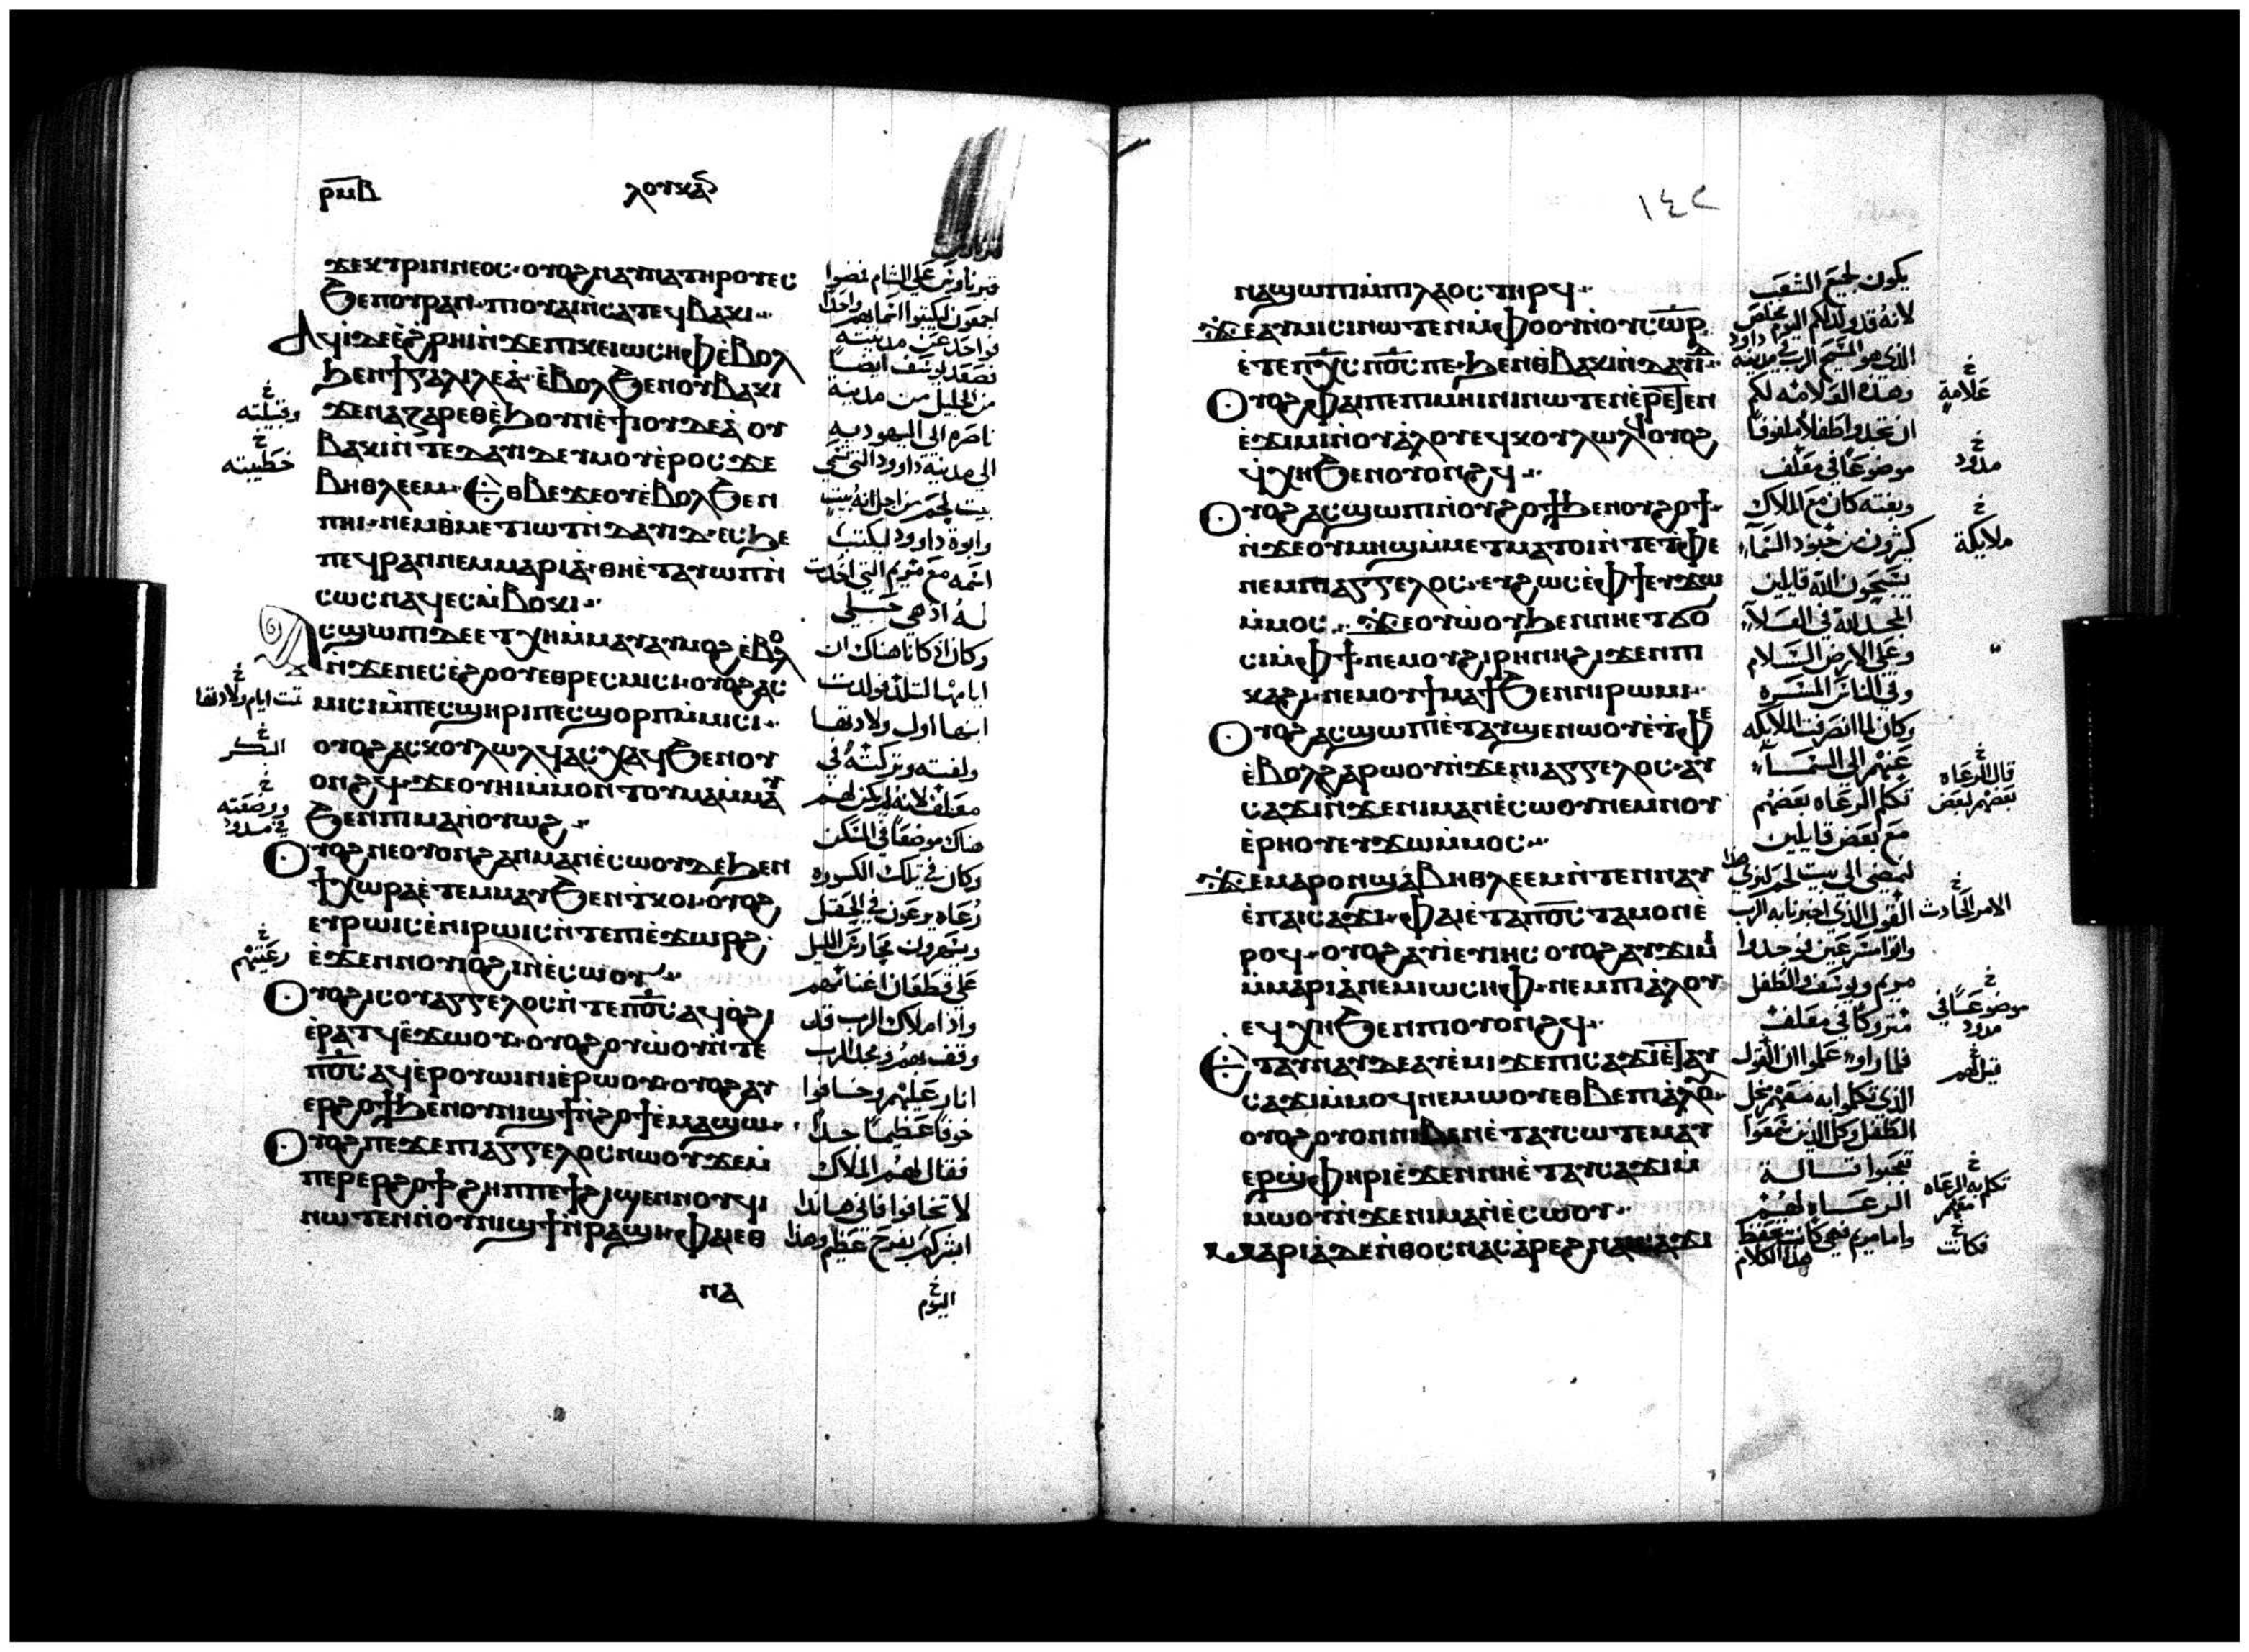 ⲣⲙⲃ
ⲗⲟⲩⲕⲁⲛ
ϫⲉⲕⲩⲣⲓⲛⲛⲉⲟⲥ· ⲟⲩⲟϩ ⲛⲁⲩⲛⲁ ⲧⲏⲣⲟⲩ ⲉⲥ
ϧⲉⲛⲟⲩⲣⲁⲛ· ⲡⲓⲟⲩⲁⲓ ⲛ̀ⲥⲁ ⲧⲉϥⲃⲁⲕⲓ
ⲁϥⲓ̀ ⲇⲉ ⲉ̀ϩⲣⲏⲓ ⲛ̀ϫⲉ ⲡⲓⲕⲉⲓⲱⲥⲏⲫ ⲉ̀ⲃⲟⲗ
ϧⲉⲛ ϯⲅⲁⲗⲓⲗⲉⲁ̀· ⲉ̀ⲃⲟⲗ ϧⲉⲛ ⲟⲩⲃⲁⲕⲓ
ϫⲉ ⲛⲁⲍⲁⲣⲉⲑ ⲉ̀ϧⲟⲩⲛ ⲉ̀ ϯⲓⲟⲩⲇⲉⲁ̀ ⲟⲩ
ⲃⲁⲕⲓ ⲛ̀ⲧⲉ ⲇⲁⲩⲓⲇ ⲉⲩⲙⲟⲩϯ ⲉ̀ⲣⲟⲥ ϫⲉ
ⲃⲏⲑⲗⲉⲉⲙ· ⲉⲑⲃⲉ ϫⲉ ⲟⲩⲉ̀ⲃⲟⲗ ϧⲉⲛ
ⲡⲏⲓ· ⲛⲉⲙ ⲑⲙⲉⲧⲓⲱⲧ ⲛ̀ⲇⲁⲩⲓⲇ· ⲉⲥϧⲉ
ⲡⲉϥⲣⲁⲛ ⲛⲉⲙ ⲙⲁⲣⲓⲁ̀· ⲑⲏ ⲉ̀ⲧⲁⲩⲱⲡ ⲛ̀
ⲥⲱⲥ ⲛⲁϥ ⲉⲥⲙ̀ⲃⲟⲕⲓ
ⲁⲥϣⲱⲡⲓ ⲇⲉ ⲉⲩⲭⲏ ⲙ̀ⲙⲁⲩ ⲁⲩⲙⲟϩ ⲉ̀ⲃⲟⲗ
ⲛ̀ϫⲉ ⲛⲉⲥⲉ̀ϩⲟⲟⲩ ⲉⲑⲣⲉⲥⲙⲓⲥⲓ· ⲟⲩⲟϩ ⲁⲥ
ⲙⲓⲥⲓ ⲙ̀ⲡⲉⲥϣⲏⲣⲓ ⲡⲉⲥϣⲟⲣⲡ ⲙ̀ⲙⲓⲥⲓ
ⲟⲩⲟϩ ⲁⲥⲕⲟⲩⲗⲱⲗϥ ⲁⲥⲭⲁϥ ϧⲉⲛ ⲟⲩ
ⲟⲛϩϥ· ϫⲉ ⲟⲩⲏⲓ ⲙ̀ⲙⲟⲛ ⲧⲟⲩ ⲙⲁ ⲙ̀ⲙⲁⲩ
ϧⲉⲛ ⲡⲓⲙⲁⲛ̀ⲟⲩⲱϩ
ⲟⲩⲟϩ ⲛⲉ ⲟⲩⲟⲛ ϩⲁⲛⲙⲁⲛⲉ̀ⲥⲱⲟⲩ ⲇⲉ ϧⲉⲛ
ϯⲭⲱⲣⲁ ⲉ̀ⲧⲉⲙⲙⲁⲩ ϧⲉⲛ ⲧ̀ⲕⲟⲓ· ⲟⲩⲟϩ
ⲉⲩⲣⲱⲓⲥ ⲉ̀ⲛⲓⲣⲱⲓⲥ ⲛ̀ⲧⲉ ⲡⲓⲉ̀ϫⲱⲣϩ
ⲉ̀ϫⲉⲛ ⲛⲟⲩⲟϩⲓ ⲛ̀ⲉ̀ⲥⲱⲟⲩ
ⲟⲩⲟϩ ⲓⲥ ⲟⲩⲁⲅⲅⲉⲗⲟⲥ ⲛ̀ⲧⲉ ⲡ̅ⲟ̅ⲥ̅ ⲁϥⲟ̀ϩⲓ
ⲉ̀ⲣⲁⲧϥ ⲉ̀ϫⲱⲟⲩ· ⲟⲩⲟϩ ⲟⲩⲱ̀ⲟⲩ ⲛ̀ⲧⲉ
ⲡ̅ⲟ̅ⲥ̅ ⲁϥⲉ̀ⲣⲟⲩⲱⲓⲛⲓ ⲉ̀ⲣⲱⲟⲩ· ⲟⲩⲟϩ ⲁⲩ
ⲉⲣϩⲟϯ ϧⲉⲛ ⲟⲩⲛⲓϣϯ ⲛ̀ϩⲟϯ ⲉ̀ⲙⲁϣⲱ
ⲟⲩⲟϩ ⲡⲉϫⲉ ⲡⲓⲁⲅⲅⲉⲗⲟⲥ ⲛⲱⲟⲩ ϫⲉ ⲙ̀
ⲡⲉⲣⲉⲣϩⲟϯ ϩⲏⲡⲡⲉ ϯϩⲓϣⲉⲛⲛⲟⲩϥⲓ
ⲛⲱⲧⲉⲛ ⲛ̀ⲟⲩⲛⲓϣϯ ⲛ̀ⲣⲁϣⲓ· ⲫⲁⲓ ⲉⲑ
ⲛⲁ
علي الشام فمضوا
اجمعون ليكتبوا اسماهم واحدا
فواحد عن مدينته
فصعد يوسف ايضا
من الجليل من مدينة
ناصره الي اليهوديه
الي مدينة داوود التي تسمي
بيت لحم من اجل انه بيت
وابوة داوود ليكتب
اسمه مع مريم التي اخذت
له اذ هي حبلي
وكان اذ كانا هناك ان
ايامها لتلد فولدت
ابنها اول ولادتها
ولفته وتركته في
معلف لانه لم يكن لهم
هناك موضعا في المسكن
وكان في تلك الكوره
رعاه يرعون في الحقل
ويسهرون محارس الليل
علي قطعان اغنامهم
واذا ملاك الرب قد
وقف بهم ومجد الرب
انار عليهم وخافوا
خوفا عظيما جدا
فقال لهم الملاك
لا تخافوا فاني هانذا
ابشركم بفرح عظيم وهذا
اليوم
خ
وقبيلته
خ
خطيبته
خ
تمت ايام ولادتها
خ
البكر
خ
ووضعته
في مدود
خ
رعيتهم
١٤٢
ⲛⲁϣⲱⲡⲓ ⲙ̀ⲡⲓⲗⲁⲟⲥ ⲧⲏⲣϥ
ϫⲉ ⲁⲩⲙⲓⲥⲓ ⲛⲱⲧⲉⲛ ⲙ̀ⲫⲟⲟⲩ ⲛ̀ⲟⲩⲥ̅ⲱ̅ⲣ̅
ⲉ̀ⲧⲉ ⲡ̅ⲭ̅ⲥ̅ ⲡ̅ⲟ̅ⲥ̅ ⲡⲉ· ϧⲉⲛ ⲑⲃⲁⲕⲓ ⲛ̀ⲇⲁⲩⲓⲇ
ⲟⲩⲟϩ ⲫⲁⲓ ⲡⲉ ⲡⲓⲙⲏⲓⲛⲓ ⲛⲱⲧⲉⲛ ⲉ̀ⲣⲉⲧⲉⲛ
ⲉ̀ϫⲓⲙⲓ ⲛ̀ⲟⲩⲁ̀ⲗⲟⲩ ⲉϥⲕⲟⲩⲗⲱⲗ ⲟⲩⲟϩ
ϥⲭⲏ ϧⲉⲛ ⲟⲩⲟⲛϩϥ
ⲟⲩⲟϩ ⲁⲥϣⲱⲡⲓ ⲛ̀ⲟⲩϩⲟϯ ϧⲉⲛ ⲟⲩϩⲟϯ
ⲛ̀ϫⲉ ⲟⲩⲙⲏϣ ⲙ̀ⲙⲉⲧⲙⲁⲧⲟⲓ ⲛ̀ⲧⲉ ⲧⲫⲉ
ⲛⲉⲙ ⲡⲓⲁⲅⲅⲉⲗⲟⲥ· ⲉⲩϩⲱⲥ ⲉ̀ⲫϯ ⲉⲩϫⲱ
ⲙ̀ⲙⲟⲥ ϫⲉ ⲟⲩⲱ̀ⲟⲩ ϧⲉⲛ ⲛⲏ ⲉⲧϭⲟ
ⲥⲓ ⲙ̀ⲫϯ· ⲛⲉⲙ ⲟⲩϩⲓⲣⲏⲛⲏ ϩⲓϫⲉⲛ ⲡⲓ
ⲕⲁϩⲓ· ⲛⲉⲙ ⲟⲩϯⲙⲁϯ ϧⲉⲛ ⲛⲓⲣⲱⲙⲓ
ⲟⲩⲟϩ ⲁⲥϣⲱⲡⲓ ⲉ̀ⲧⲁⲩϣⲉⲛⲱⲟⲩ ⲉ̀ⲧⲫⲉ
ⲉ̀ⲃⲟⲗ ϩⲁⲣⲱⲟⲩ ⲛ̀ϫⲉ ⲛⲓⲁⲅⲅⲉⲗⲟⲥ· ⲁⲩ
ⲥⲁϫⲓ ⲛ̀ϫⲉ ⲛⲓⲙⲁⲛⲉ̀ⲥⲱⲟⲩ ⲛⲉⲙ ⲛⲟⲩ
ⲉ̀ⲣⲏⲟⲩ ⲉⲩϫⲱ ⲙ̀ⲙⲟⲥ
ϫⲉ ⲙⲁⲣⲟⲛ ϣⲁ ⲃⲏⲑⲗⲉⲉⲙ ⲛ̀ⲧⲉⲛⲛⲁⲩ
ⲉ̀ⲡⲁⲓⲥⲁϫⲓ· ⲫⲁⲓ ⲉ̀ⲧⲁ ⲡ̅ⲟ̅ⲥ̅ ⲧⲁⲙⲟⲛ ⲉ̀
ⲣⲟϥ· ⲟⲩⲟϩ ⲁⲩⲓ̀ ⲉⲩⲓⲏⲥ ⲟⲩⲟϩ ⲁⲩϫⲓⲙⲓ
ⲙ̀ⲙⲁⲣⲓⲁ̀ ⲛⲉⲙ ⲓⲱⲥⲏⲫ· ⲛⲉⲙ ⲡⲓⲁ̀ⲗⲟⲩ
ⲉϥⲭⲏ ϧⲉⲛ ⲡⲓⲟⲩⲟⲛϩϥ
ⲉⲧⲁⲩⲛⲁⲩ ⲇⲉ ⲁⲩⲉ̀ⲙⲓ ϫⲉ ⲡⲓⲥⲁϫⲓ ⲉ̀ⲧⲁⲩ
ⲥⲁϫⲓ ⲙ̀ⲙⲟϥ ⲛⲉⲙⲱⲟⲩ ⲉⲑⲃⲉ ⲡⲓⲁ̀ⲗⲟⲩ
ⲟⲩⲟϩ ⲟⲩⲟⲛ ⲛⲓⲃⲉⲛ ⲉ̀ⲧⲁⲩⲥⲱⲧⲉⲙ ⲁⲩ
ⲉⲣϣ̀ⲫⲏⲣⲓ ⲉ̀ϫⲉⲛ ⲛⲏ ⲉ̀ⲧⲁⲩⲥⲁϫⲓ ⲙ̀
ⲙⲱⲟⲩ ⲛ̀ϫⲉ ⲛⲓⲙⲁⲛⲉ̀ⲥⲱⲟⲩ
ⲙⲁⲣⲓⲁ̀ ⲇⲉ ⲛ̀ⲑⲟⲥ ⲛⲁⲥⲁ̀ⲣⲉϩ ⲛⲁⲓⲥⲁϫⲓ
يكون لجميع الشعب
لانه قد ولد لكم اليوم مخلص
الذي هو المسيح الرب في مدينة داود
وهذه العلامه لكم
ان تجدوا طفلا ملفوفا
موضوعا في معلف
وبغته كان مع الملاك
كثرون من جنود السماء
يسبحون الله قايلين
المجد لله في العلاء
وعلي الارض السلام
وفي الناس المسره
وكان لما انصرفت الملايكه
عنهم الي السماء
تكلم الرعاه بعضهم
مع بعض قايلين
لنمضي الي بيت لحم لنري هذا
القول الذي اخبرنا به الرب
واتوا مسرعين فوجدوا
مريم ويوسف والطفل
متروكا في معلف
فلما راوه علموا ان القول
الذي تكلموا به معهم من اجل
الطفل وكل الذين سمعوا
تعجبوا مما قاله
الرعاه لهم
واما مريم فهي كانت تحفظ
هذا الكلام
خ
علامة
خ
مدود
خ
ملايكة
خ
قال الرعاه
بعضهم لبعض
خ
الامر الحادث
خ
موضوعا في
مدود
خ
قيل لهم
خ
تكلم به الرعاه
معهم
خ
فكانت